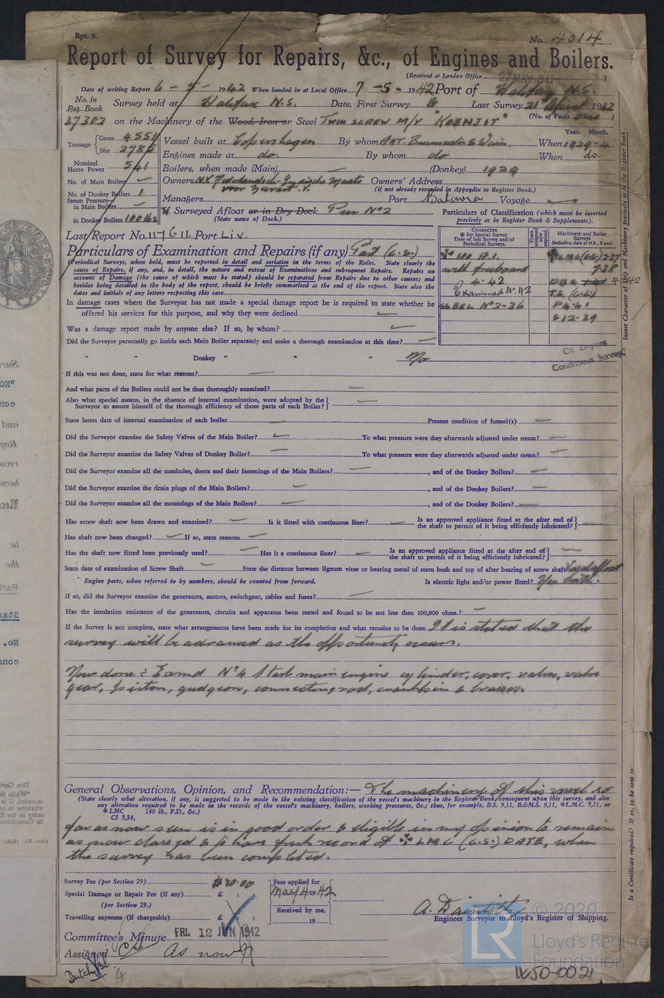 Rpt. 9.
No. 4014
Report of Survey for Repairs, &c., of Engines and Boilers.
(Received at London Office 27 MAY 1942)
Date of writing Report 6-5-1942 When handed in at Local Office 7-5-1942 Port of Halifax N.S.
No. in Reg. Book Survey held at Halifax N.S. Date, First Survey & Last Survey 1942
37302 on the Machinery of the Wood, Iron or Steel Twin screw M/V "KOENJIT" (No. of Visits one)
Tonnage { Gross 4551 Net 2786 Vessel built at Copenhagen By whom Akt. Burmeister & Wain When 1929-4
Year. Month.
Engines made at do. By whom do When do.
Nominal Horse Power 541 Boilers, when made (Main) (Donkey) 1929
No. of Main Boilers Owners Owners' Address
(if not already recorded in Appendix to Register Book.)
No. of Donkey Boilers 1
Steam Pressure in Main Boilers Managers Port Batavia Voyage
in Donkey Boilers 100 lbs If Surveyed Afloat or in Dry Dock Pier No 2
(State name of Dock.)
Particulars of Classification (which must be inserted precisely as in Register Book & Supplements).
Last Report No. 117611 Port Liv.
Particulars of Examination and Repairs (if any) Part (C.S.)
(Periodical Surveys, when held, must be reported in detail and seriatim in the terms of the Rules. State clearly the cause of Repairs, if any, and, in detail, the nature and extent of Examinations and subsequent Repairs. Repairs on account of Damage (the cause of which must be stated) should be separated from Repairs due to other causes; and besides being detailed in the body of the report, should be briefly summarised at the end of the report. State also the dates and initials of any letters respecting this case.
CHARACTER
for Special Survey Date of last Survey and of Periodical Surveys.
Machinery and Boiler Surveys (including date of N.B., if any)
100 A.1.
with freeboard
4.42
Examined 4.42
SS BEL No 2-36
7.38
T.S. (CL)
P 4.41
S 12.39
Oil Engines
Continuous Survey
In damage cases where the Surveyor has not made a special damage report he is required to state whether he offered his services for this purpose, and why they were declined —
Was a damage report made by anyone else? If so, by whom? —
Did the Surveyor personally go inside each Main Boiler separately and make a thorough examination at this time? —
" " Donkey " " " No
If this was not done, state for what reasons? —
And what parts of the Boilers could not be thoroughly examined? —
Also what special means, in the absence of internal examination, were adopted by the Surveyor to assure himself of the thorough efficiency of those parts of each Boiler? —
State latest date of internal examination of each boiler — Present condition of funnel(s) —
Did the Surveyor examine the Safety Valves of the Main Boiler? — To what pressure were they afterwards adjusted under steam? —
Did the Surveyor examine the Safety Valves of Donkey Boiler? — To what pressure were they afterwards adjusted under steam? —
Did the Surveyor examine all the manholes, doors and their fastenings of the Main Boilers? — , and of the Donkey Boilers? —
Did the Surveyor examine the drain plugs of the Main Boilers? — , and of the Donkey Boilers? —
Did the Surveyor examine all the mountings of the Main Boilers? — , and of the Donkey Boilers? —
Has screw shaft now been drawn and examined? — Is it fitted with continuous liner? — Is an approved appliance fitted at the after end of the shaft to permit of it being efficiently lubricated? —
Has shaft now been changed? — If so, state reasons —
Has the shaft now fitted been previously used? — Has it a continuous liner? — Is an approved appliance fitted at the after end of the shaft to permit of it being efficiently lubricated? —
State date of examination of Screw Shaft — State the distance between lignum vitæ or bearing metal of stern bush and top of after bearing of screw shaft
Engine parts, when referred to by numbers, should be counted from forward. Is electric light and/or power fitted? Yes both
If so, did the Surveyor examine the generators, motors, switchgear, cables and fuses? —
Has the insulation resistance of the generators, circuits and apparatus been tested and found to be not less than 100,000 ohms? —
If the Survey is not complete, state what arrangements have been made for its completion and what remains to be done It is stated that the
survey will be advanced as the opportunity occurs.
Now done: Examd No 4 Starbd main engine cylinder, cover, valves, valve
gear, piston, gudgeon, connecting rod, crankpin & brasses.
General Observations, Opinion, and Recommendation:— The machinery of this vessel so
(State clearly what alteration, if any, is suggested to be made in the existing classification of the vessel's machinery in the Register Book, consequent upon this survey, and also any alteration required to be made in the records of the vessel's machinery, boilers, working pressures, &c.; thus, for example, B.S. 9,11, B.&M.S. 9,11, L.M.C. 9,11, or LMC CS 9,34, 140 lb., F.D., &c.)
far as now seen is in good order & eligible in my opinion to remain
as now classed & to have fresh record of LMC (C.S.) DATE, when
the survey has been completed.
Survey Fee (per Section 29) $30.00
Fees applied for May 4 1942
Special Damage or Repair Fee (if any) £
(per Section 29.)
Received by me,
19
Travelling expenses (if chargeable) £ : :
A. Daintith
Engineer Surveyor to Lloyd's Register of Shipping.
Committee's Minute FRI. 12 JUN 1942
Assigned As now
© 2020
LR
Lloyd's Register
Foundation
W50-0021
Is a Certificate required? If so, to be sent to